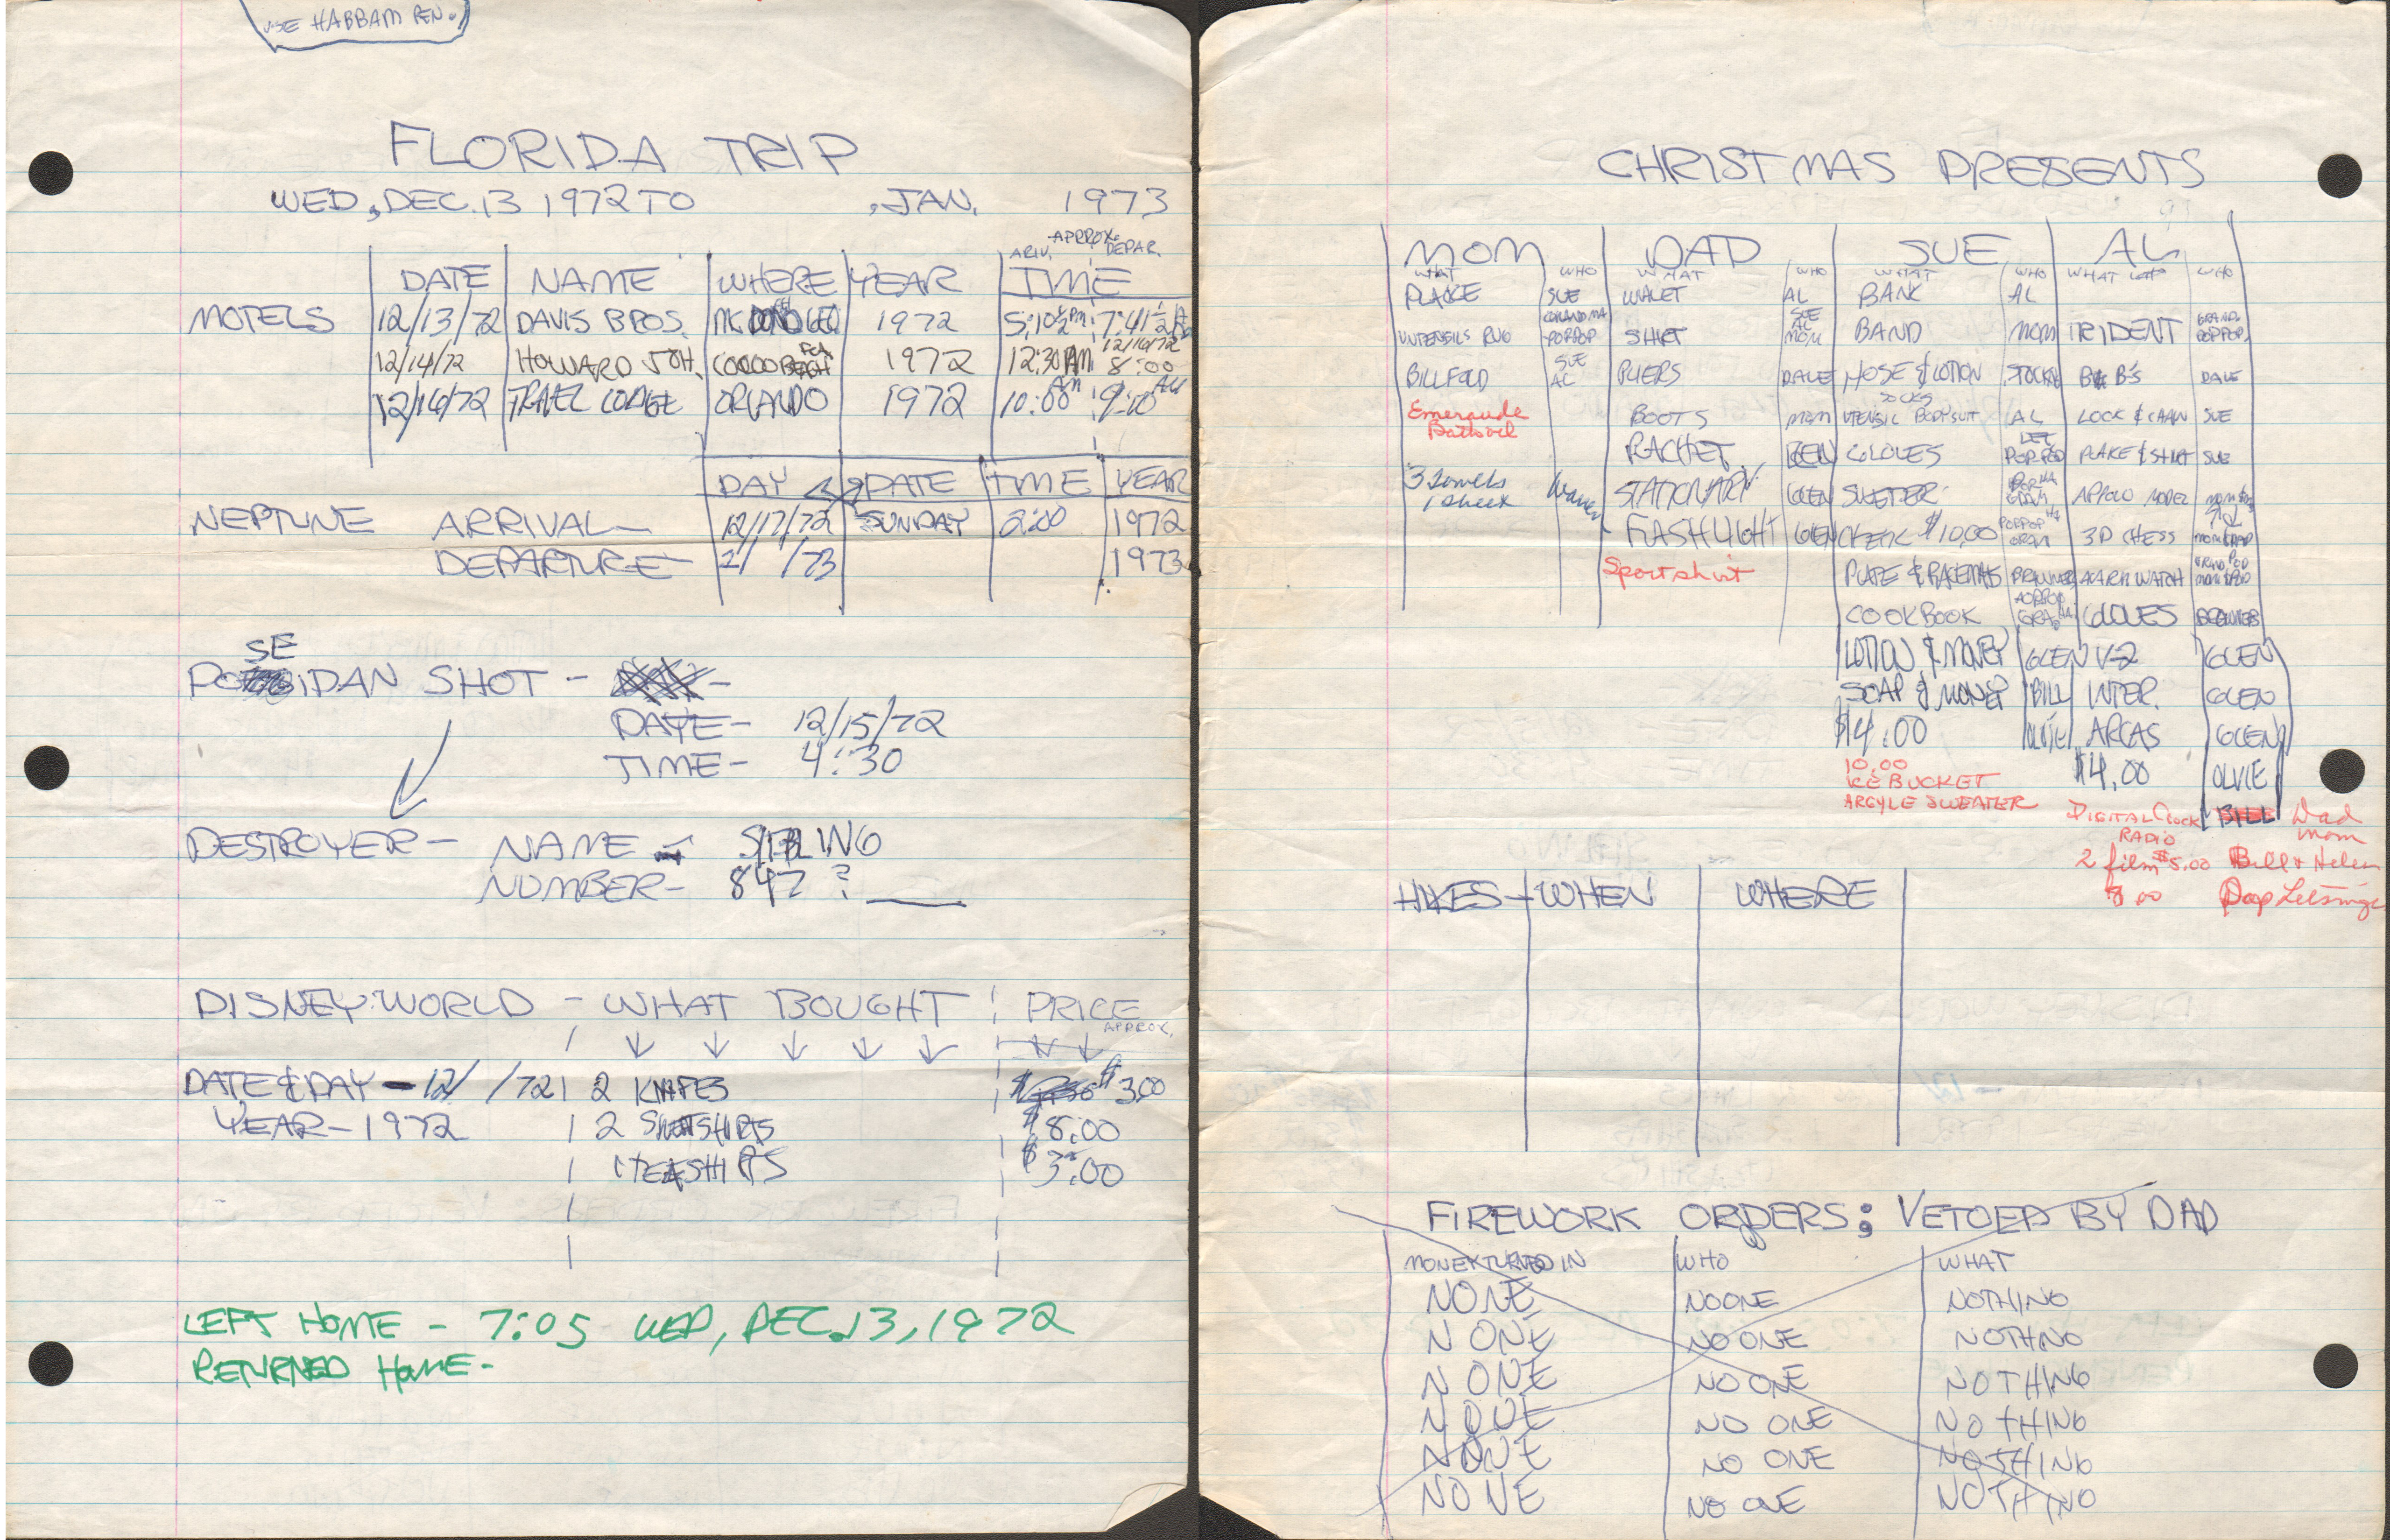 USE HABBAM PEN.
FLORIDA TRIP
WED, DEC. 13 1972 TO , JAN. 1973
APPROX.
ARIV. DEPAR.
DATE NAME WHERE YEAR TIME
MOTELS 12/13/72 DAVIS BROS. 1972 5:10 PM 7:41
12/16/72
12/14/72 HOWARD JOH. COCOO BEACH FLA 1972 12:30 8:00
12/16/72 TRAVEL LODGE ORLANDO 1972 10:00 AM 9:10 AM
DAY DATE TIME YEAR
NEPTUNE ARRIVAL— 12/17/72 SUNDAY 2:00 1972
DEPARTURE— 2/ /73 1973
SE
POIDAN SHOT -
DATE- 12/15/72
TIME- 4:30
DESTROYER- NAME -
NUMBER- 847 ?
DISNEY WORLD - WHAT BOUGHT PRICE
APPROX.
DATE & DAY - 12/ /72 2 KNIFES $3.00
YEAR-1972 2 $8.00
$3.00
LEFT HOME - 7:05 WED, DEC. 13, 1972
RETURNED HOME-
CHRISTMAS PRESENTS
MOM DAD SUE AL
WHAT WHO WHAT WHO WHAT WHO WHAT WHO
PLAKE SUE WALET AL BANK AL
UNTENSILS RUG GRANDMA POPPOP SHIRT SUE AL MOM BAND MOM TRIDENT GRAND. POPPOP.
BILLFOLD SUE AL PLIERS DALE HOSE & LOTION B B'S DALE
Emeraude Bathoil BOOTS MOM UTENSIL SOCKS BODYSUIT AL LOCK & CHAIN SUE
RACHET GLEN GLOVES PLAKE & SHIRT SUE
3 towels 1 sheet STATIONARY GLEN SWETTER APPOLO MODEL
FLASHLIGHT GLEN CHECK $10.00 3D CHESS
Sportshirt PLATE & PLACEMATS BRAWNERS ALARM WATCH
COOKBOOK GLOVES BRAWNERS
LOTION & MONEY GLEN V-2 GLEN
SOAP & MONEY BILL INTER. GLEN
$4.00 OLVIE ARCAS GLEN
10.00 $4.00 OLVIE
ICE BUCKET
ARGYLE SWEATER DIGITAL CLOCK RADIO BILL Dad Mom
2 film $5.00 Bill & Helen
8.00
HIKES - WHEN WHERE
FIREWORK ORDERS: VETOED BY DAD
MONEY TURNED IN WHO WHAT
NONE NO ONE NOTHING
NONE NO ONE NOTHNG
NONE NO ONE NOTHING
NONE NO ONE NOTHING
NONE NO ONE NOTHING
NONE NO ONE NOTHING